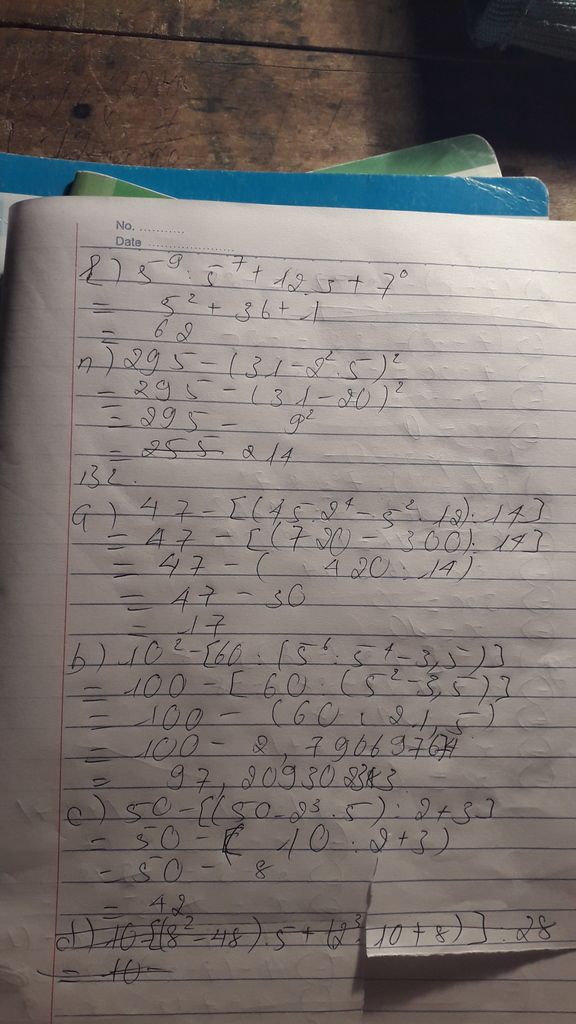 No. ...........
Date ....................
l) 5⁹ : 5⁷ + 12.3 + 7⁰
= 5² + 36 + 1
= 62
n) 295 - (31 - 2² . 5)²
= 295 - (31 - 20)²
= 295 - 9²
= 255 214
132.
a) 47 - [(45.2⁴ - 5² . 12) : 14]
= 47 - [(720 - 300) : 14]
= 47 - ( 420 : 14)
= 47 - 30
= 17
b) 10² - [60 : (5⁶ : 5⁴ - 3,5)]
= 100 - [60 : (5² - 3,5)]
= 100 - (60 : 21,5)
= 100 - 2,7906976
= 97,209302
c) 50 - [(50 - 2³ . 5) : 2 + 3]
= 50 - ( 10 : 2 + 3)
= 50 - 8
= 42
d) 10 - [(8² - 48) . 5 + (2³ . 10 + 8)] : 28
= 10